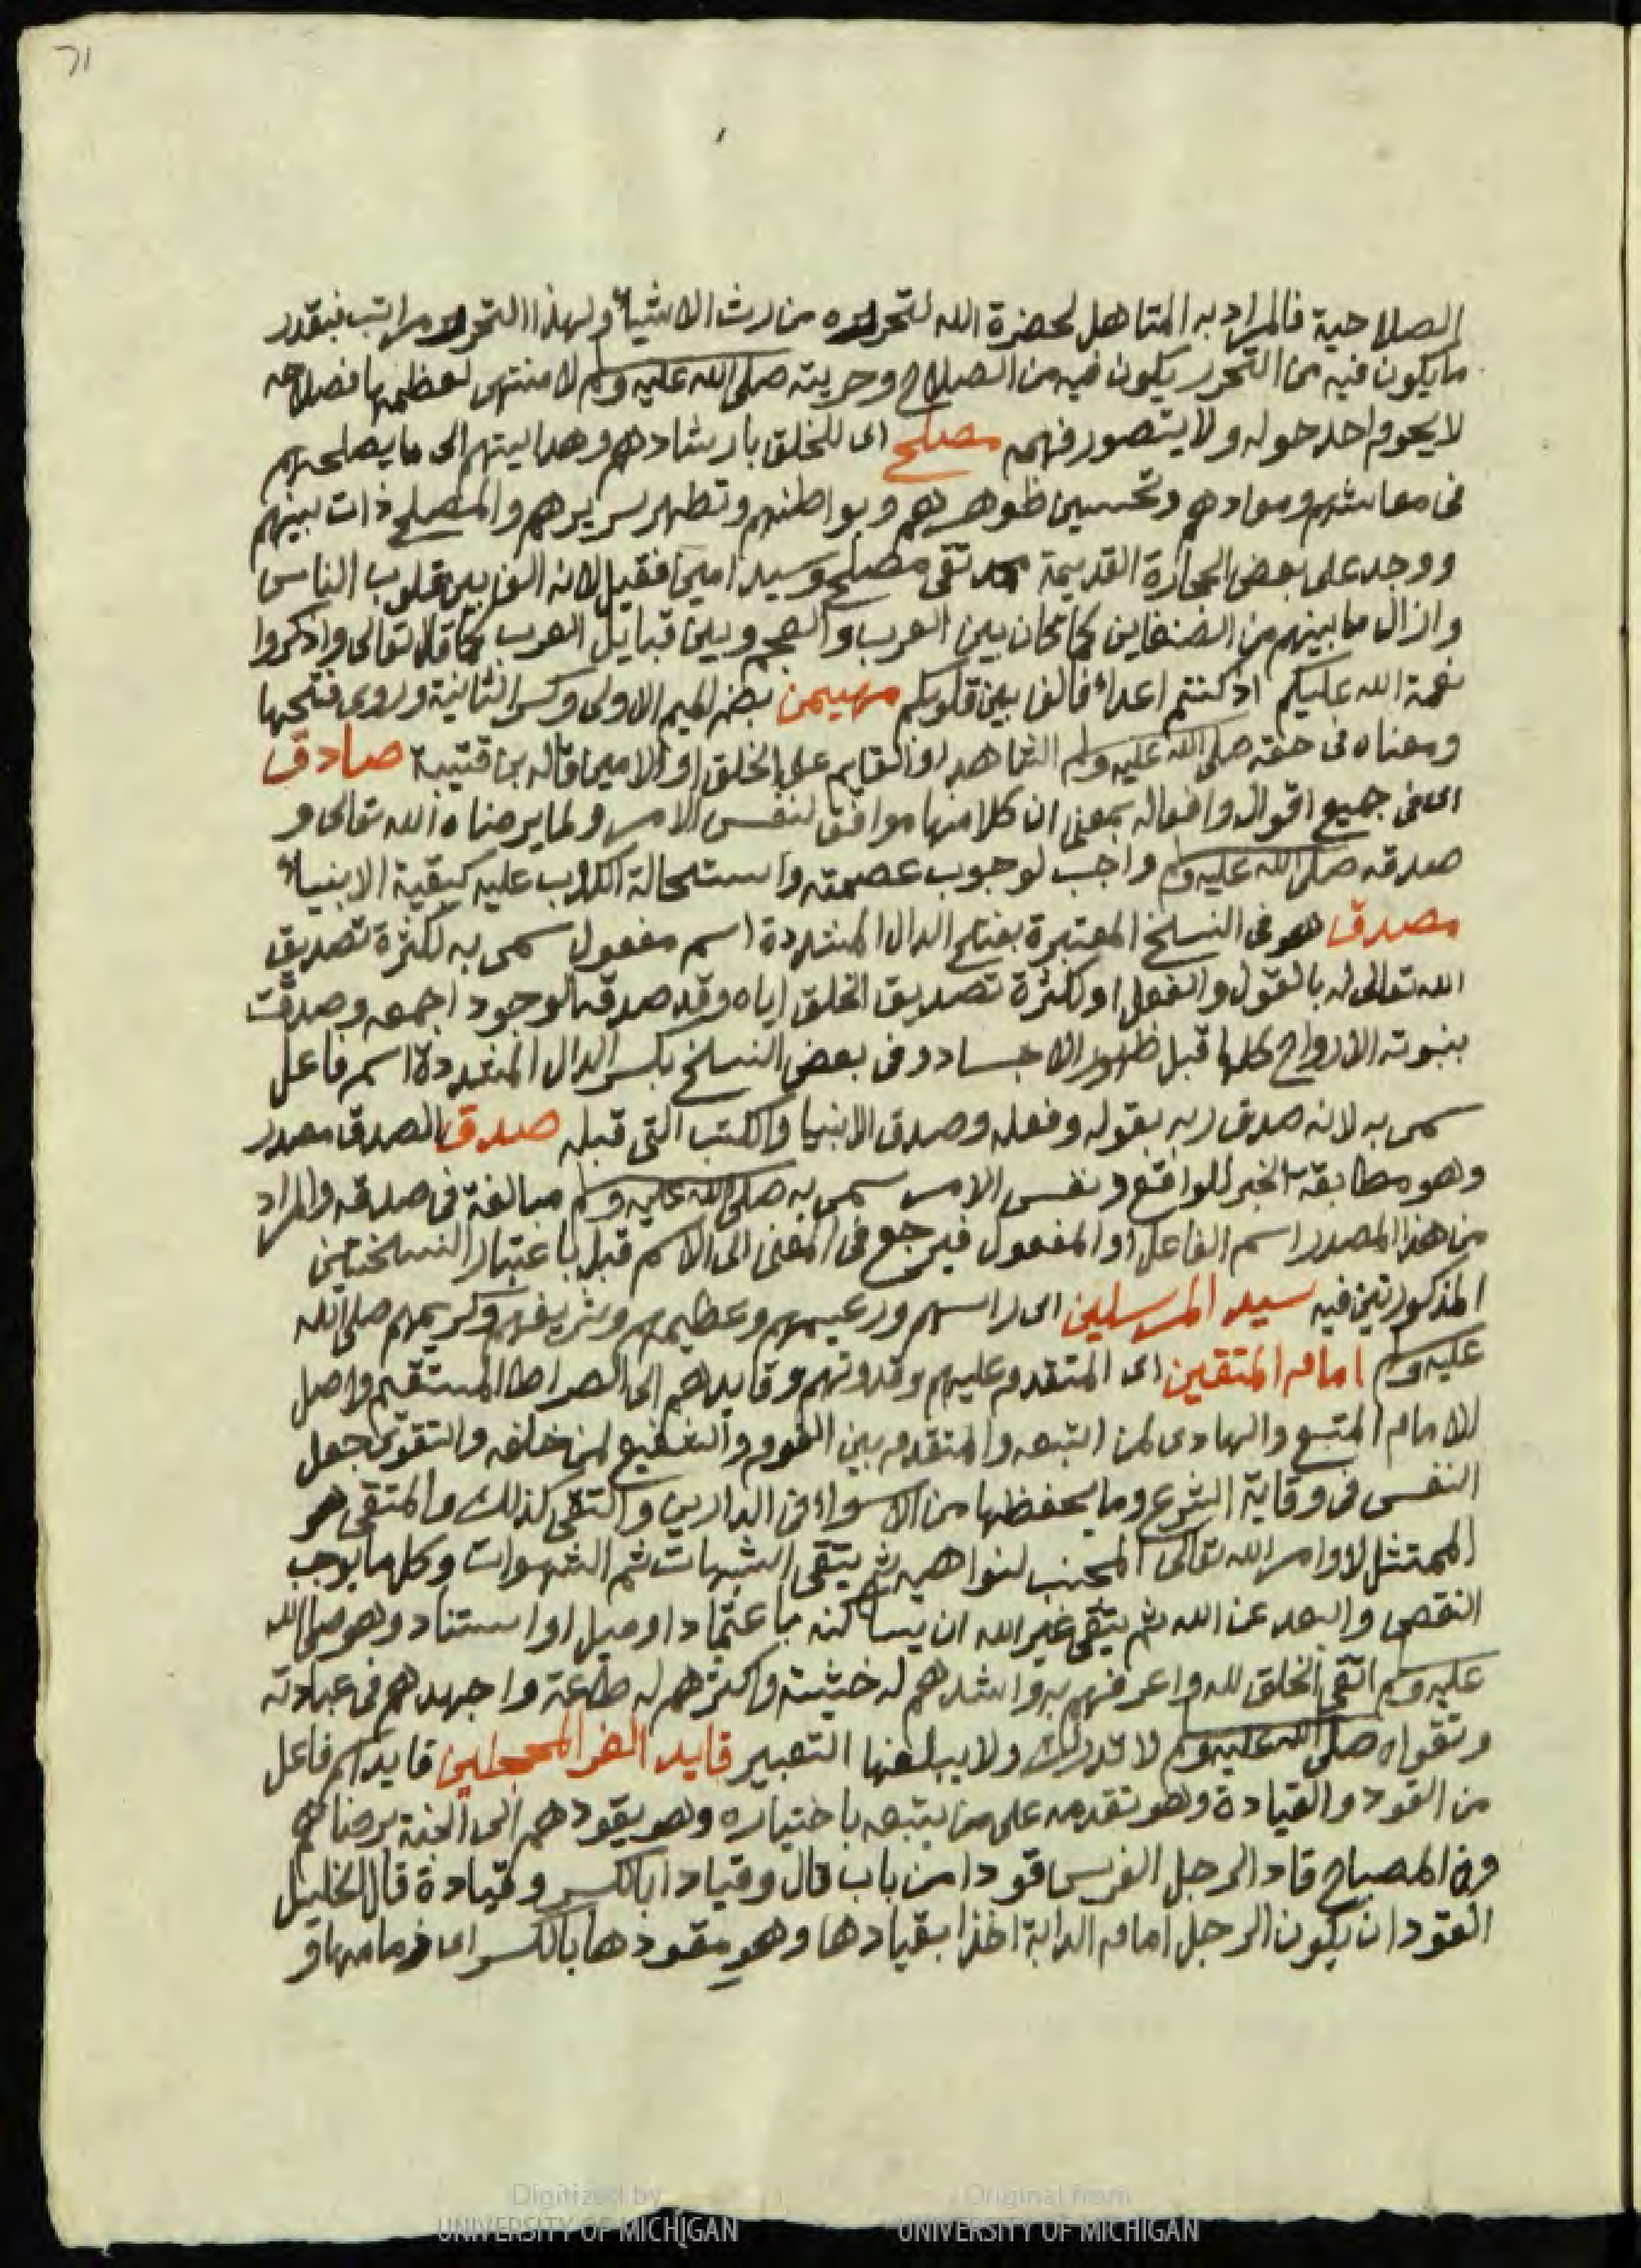 71
الصلاحية فالمراد به المتاهل لحضرة الله لتحرره من رث الاشيآء ولهذا التحرر مراتب فبقدر
ما يكون فيه من التحرر يكون فيه من الصلاح وحريته صلى الله عليه وسلم لا منتهى لعظمها فصلاحه
لا يحوم احد حوله ولا يتصور فهمه مصلح اى للخلق بارشادهم وهدايتهم الى ما يصلحهم
فى معاشهم ومعادهم وتحسين ظوهرهم وبواطنهم وتطهر سريرهم والمصلح ذات بينهم
ووجد على بعض الحجارة القديمة محمد تقى مصلح وسيد امين فقيل لانه الف بين قلوب الناس
وازال ما بينهم من الضغاين كما كان بين العرب والعجم وبين قبايل العرب كما قال تعالى واذكروا
نعمة الله عليكم اذ كنتم اعداء فالف بين قلوبكم مهيمن بضم الميم الاولى وكسر الثانية وروى فتحها
ومعناه فى حقه صلى الله عليه وسلم الشاهد او القايم على الخلق او الامين قاله بن قتيبة صادق
اى فى جميع اقواله وافعاله بمعنى ان كلا منها موافق لنفس الامر ولما يرضاه الله تعالى و
صدقه صلى الله عليه وسلم واجب لوجوب عصمته واستحالة الكذب عليه كبقية الانبيآء
مصدق هو فى النسخ المعتبرة بفتح الدال المشددة اسم مفعول سمى به لكثرة تصديق
الله تعالى له بالقول والفعل او لكثرة تصديق الخلق اياه وقد صدقه الوجود اجمعه وصدقت
بنبوته الارواح كلها قبل ظهور الاجساد وفى بعض النسخ بكسر الدال المشددة اسم فاعل
سمى به لانه صدق ربه بقوله وفعله وصدق الانبيا والكتب التى قبله صدق الصدق مصدر
وهو مطابقة الخبر للواقع ونفس الامر سمى به صلى الله عليه وسلم مبالغة فى صدقه والمراد
من هذا المصدر اسم الفاعل او المفعول فيرجع فى المعنى الى الاسم قبله باعتبار النسختين
المذكورتين فيه سيد المرسلين اى راسهم وزعيمهم وعظيمهم وشريفهم وكريمهم صلى الله
عليه وسلم امام المتقين اى المتقدم عليهم وقدوتهم وقايدهم الى الصراط المستقيم واصل
الامام المتبع والهادى لمن اتبعه والمتقدم بين القوم والشفيع لمن خلفه والتقوى جعل
النفس فى وقاية الشرع وما يحفظها من الاسواء فى الدارين والتقى كذلك والمتقى هو
الممتثل لاوامر الله تعالى المجتنب لنواهيه ثم يتقى الشبهات ثم الشهوات وكل ما يوجب
النقص والبعد عن الله ثم يتقى غير الله ان يساكنه باعتماد او ميل او استناد وهو صلى الله
عليه وسلم اتقى الخلق لله واعرفهم به واشدهم له خشية واكثرهم له طاعة واجهدهم فى عبادته
وتقواه صلى الله عليه وسلم لا تدرك ولا يبلغها التعبير قايد الغر المحجلين قايد اسم فاعل
من القود والقيادة وهو تقدمه على من يتبعه باختياره وهو يقودهم الى الجنة برضاهم
وفى المصباح قاد الرجل الفرس قودا من باب قال وقيادا بالكسر وقيادة قال الخليل
القود ان يكون الرجل امام الدابة اخذا بقيادها وهو مقودها بالكسر اى زمامها و
Digitized by
UNIVERSITY OF MICHIGAN
Original from
UNIVERSITY OF MICHIGAN